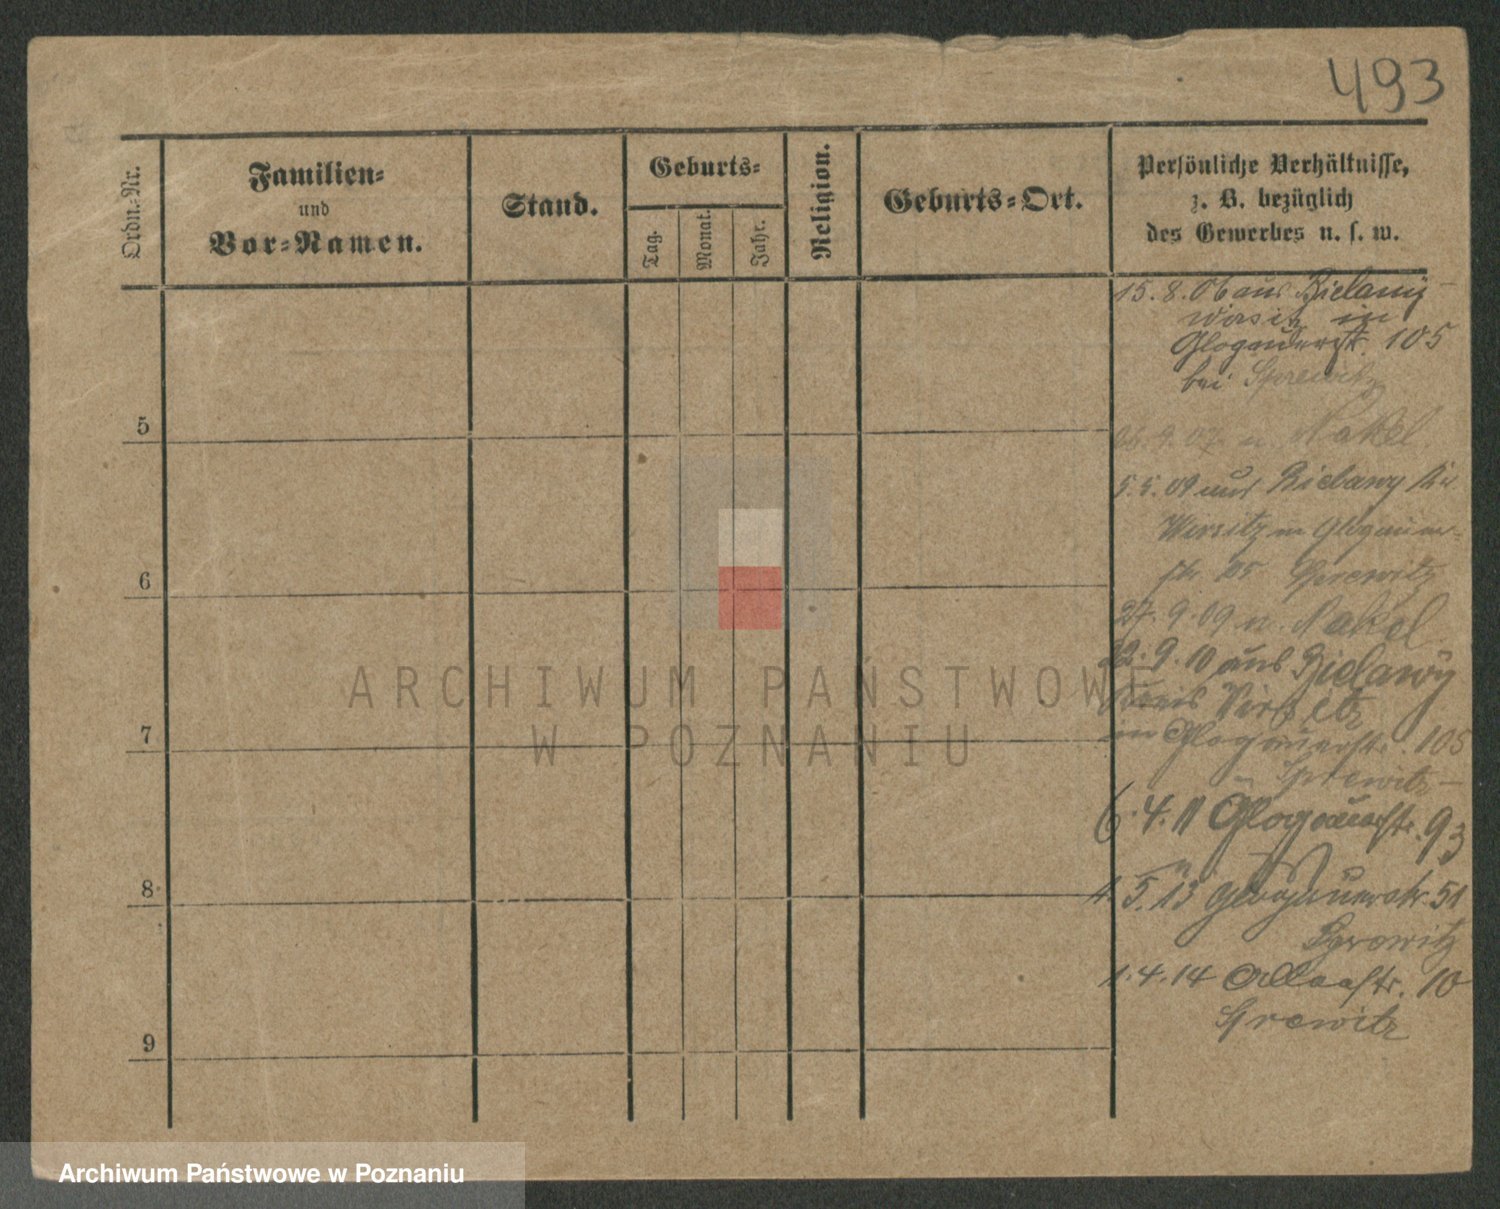 493
Ordn.-Nr.
Familien-
und
Vor-Namen.
Stand.
Geburts-
Tag.
Monat.
Jahr.
Religion.
Geburts-Ort.
Persönliche Verhältnisse,
z. B. bezüglich
des Gewerbes u. s. w.
15. 8. 06 aus Bielawy
Wirsitz in
Glogauerstr. 105
bei Sprewitz
5
9. 07 n Nakel
5. 5. 09 aus Bielawy
Wirsitz in Glogauer-
str. 105 Sprewitz
6
27. 9. 09 n. Nakel
22. 9. 10 aus Bielawy
Kreis Wirsitz
in Glogauerstr. 105
7
Sprewitz
6. 4. 11 Glogauerstr. 93
8
4. 5. 13 Glogauerstr. 51
Sprowitz
1. 4. 14 str. 10
Sprewitz
9
ARCHIWUM PAŃSTWOWE
W POZNANIU
Archiwum Państwowe w Poznaniu